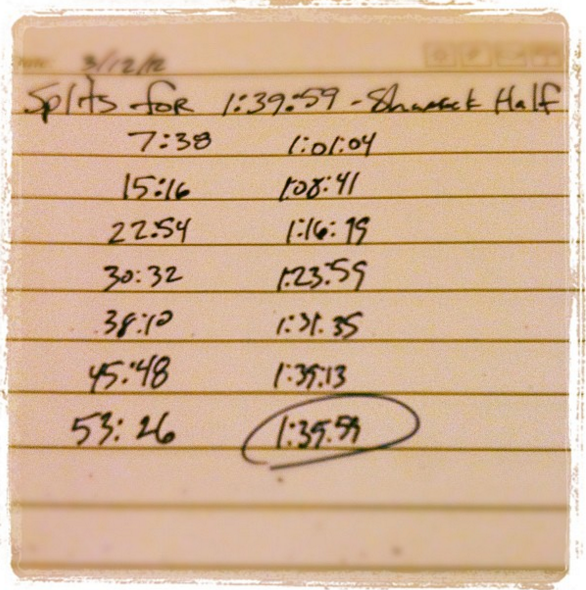 3/12/12
Splits for 1:39:59 - Shamrock Half
7:38 1:01:04
15:16 1:08:41
22:54 1:16:19
30:32 1:23:59
38:10 1:31:35
45:48 1:39:13
53:26 1:39:59